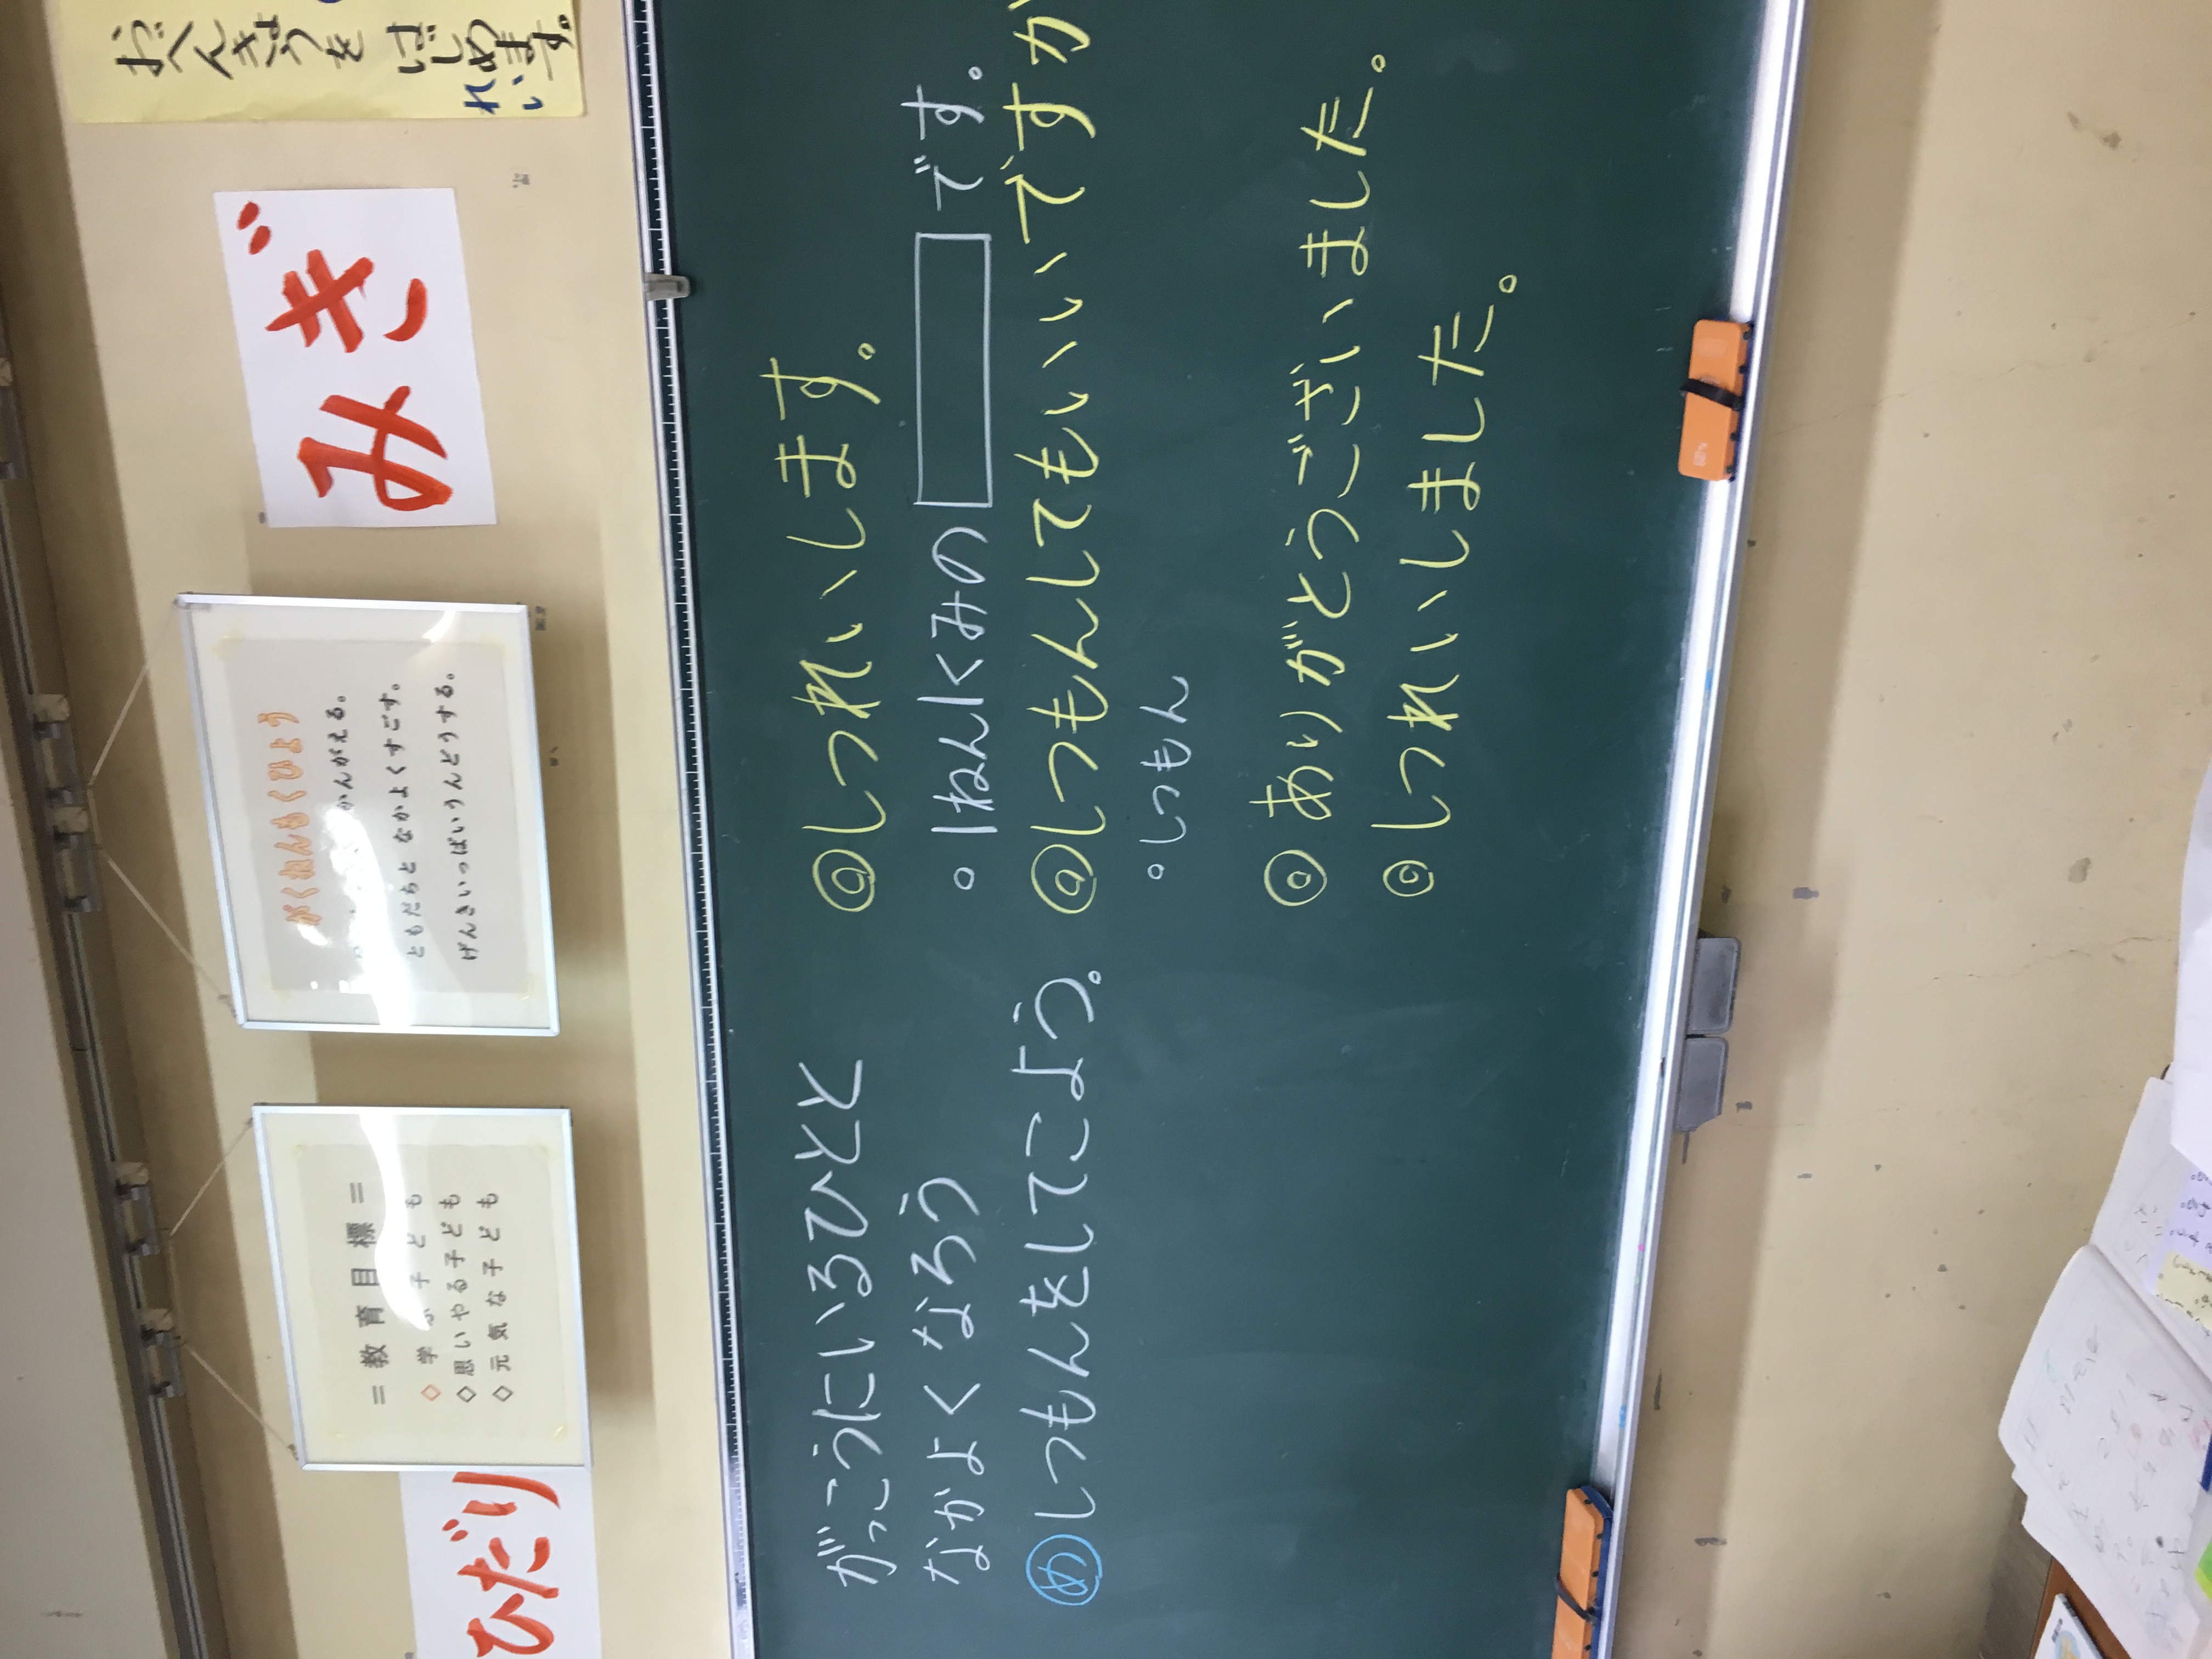 おべんきょうを
はじめます。
れい
みぎ
がくねんもくひょう
かんがえる。
ともだちと なかよくすごす。
げんきいっぱいうんどうする。
=教育目標=
◇学 子ども
◇思いやる子ども
◇元気な子ども
ひだり
がっこうにいるひとと
なかよく なろう
め しつもんをしてこよう。
◎しつれいします。
・1ねん1くみの です。
◎しつもんしてもいいですか
・しつもん
◎ありがとうございました。
◎しつれいしました。